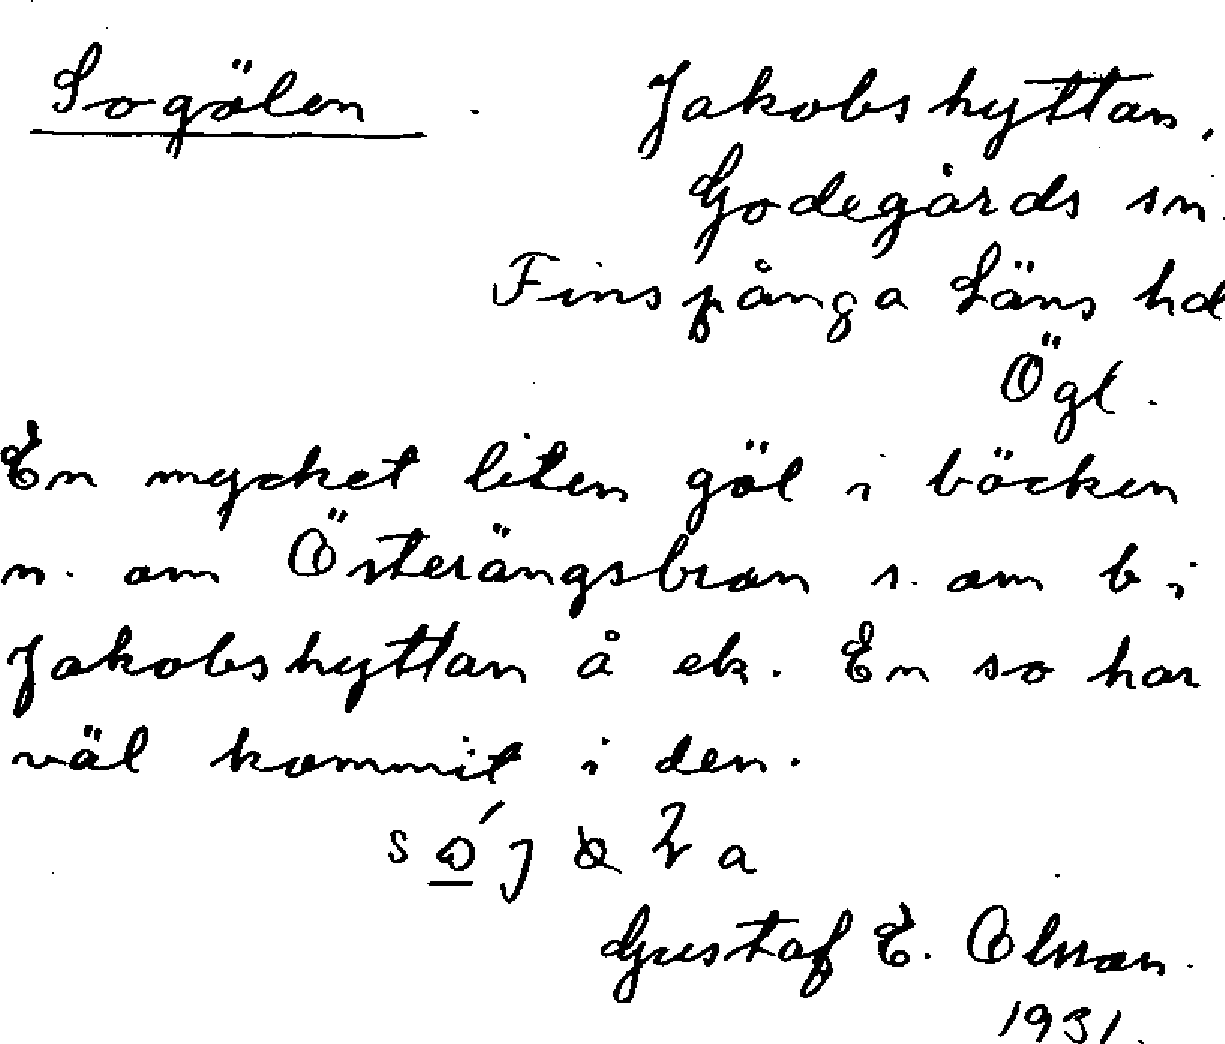 Sogölen . Jakobshyttan.
Godegårds sn.
Finspånga Läns hd
Ögl.
En mycket liten göl i bäcken
n. om Österängsbron s. om b i
Jakobshyttan å ek. En so har
väl kommit i den.
Gustaf E. Olsson.
1931.